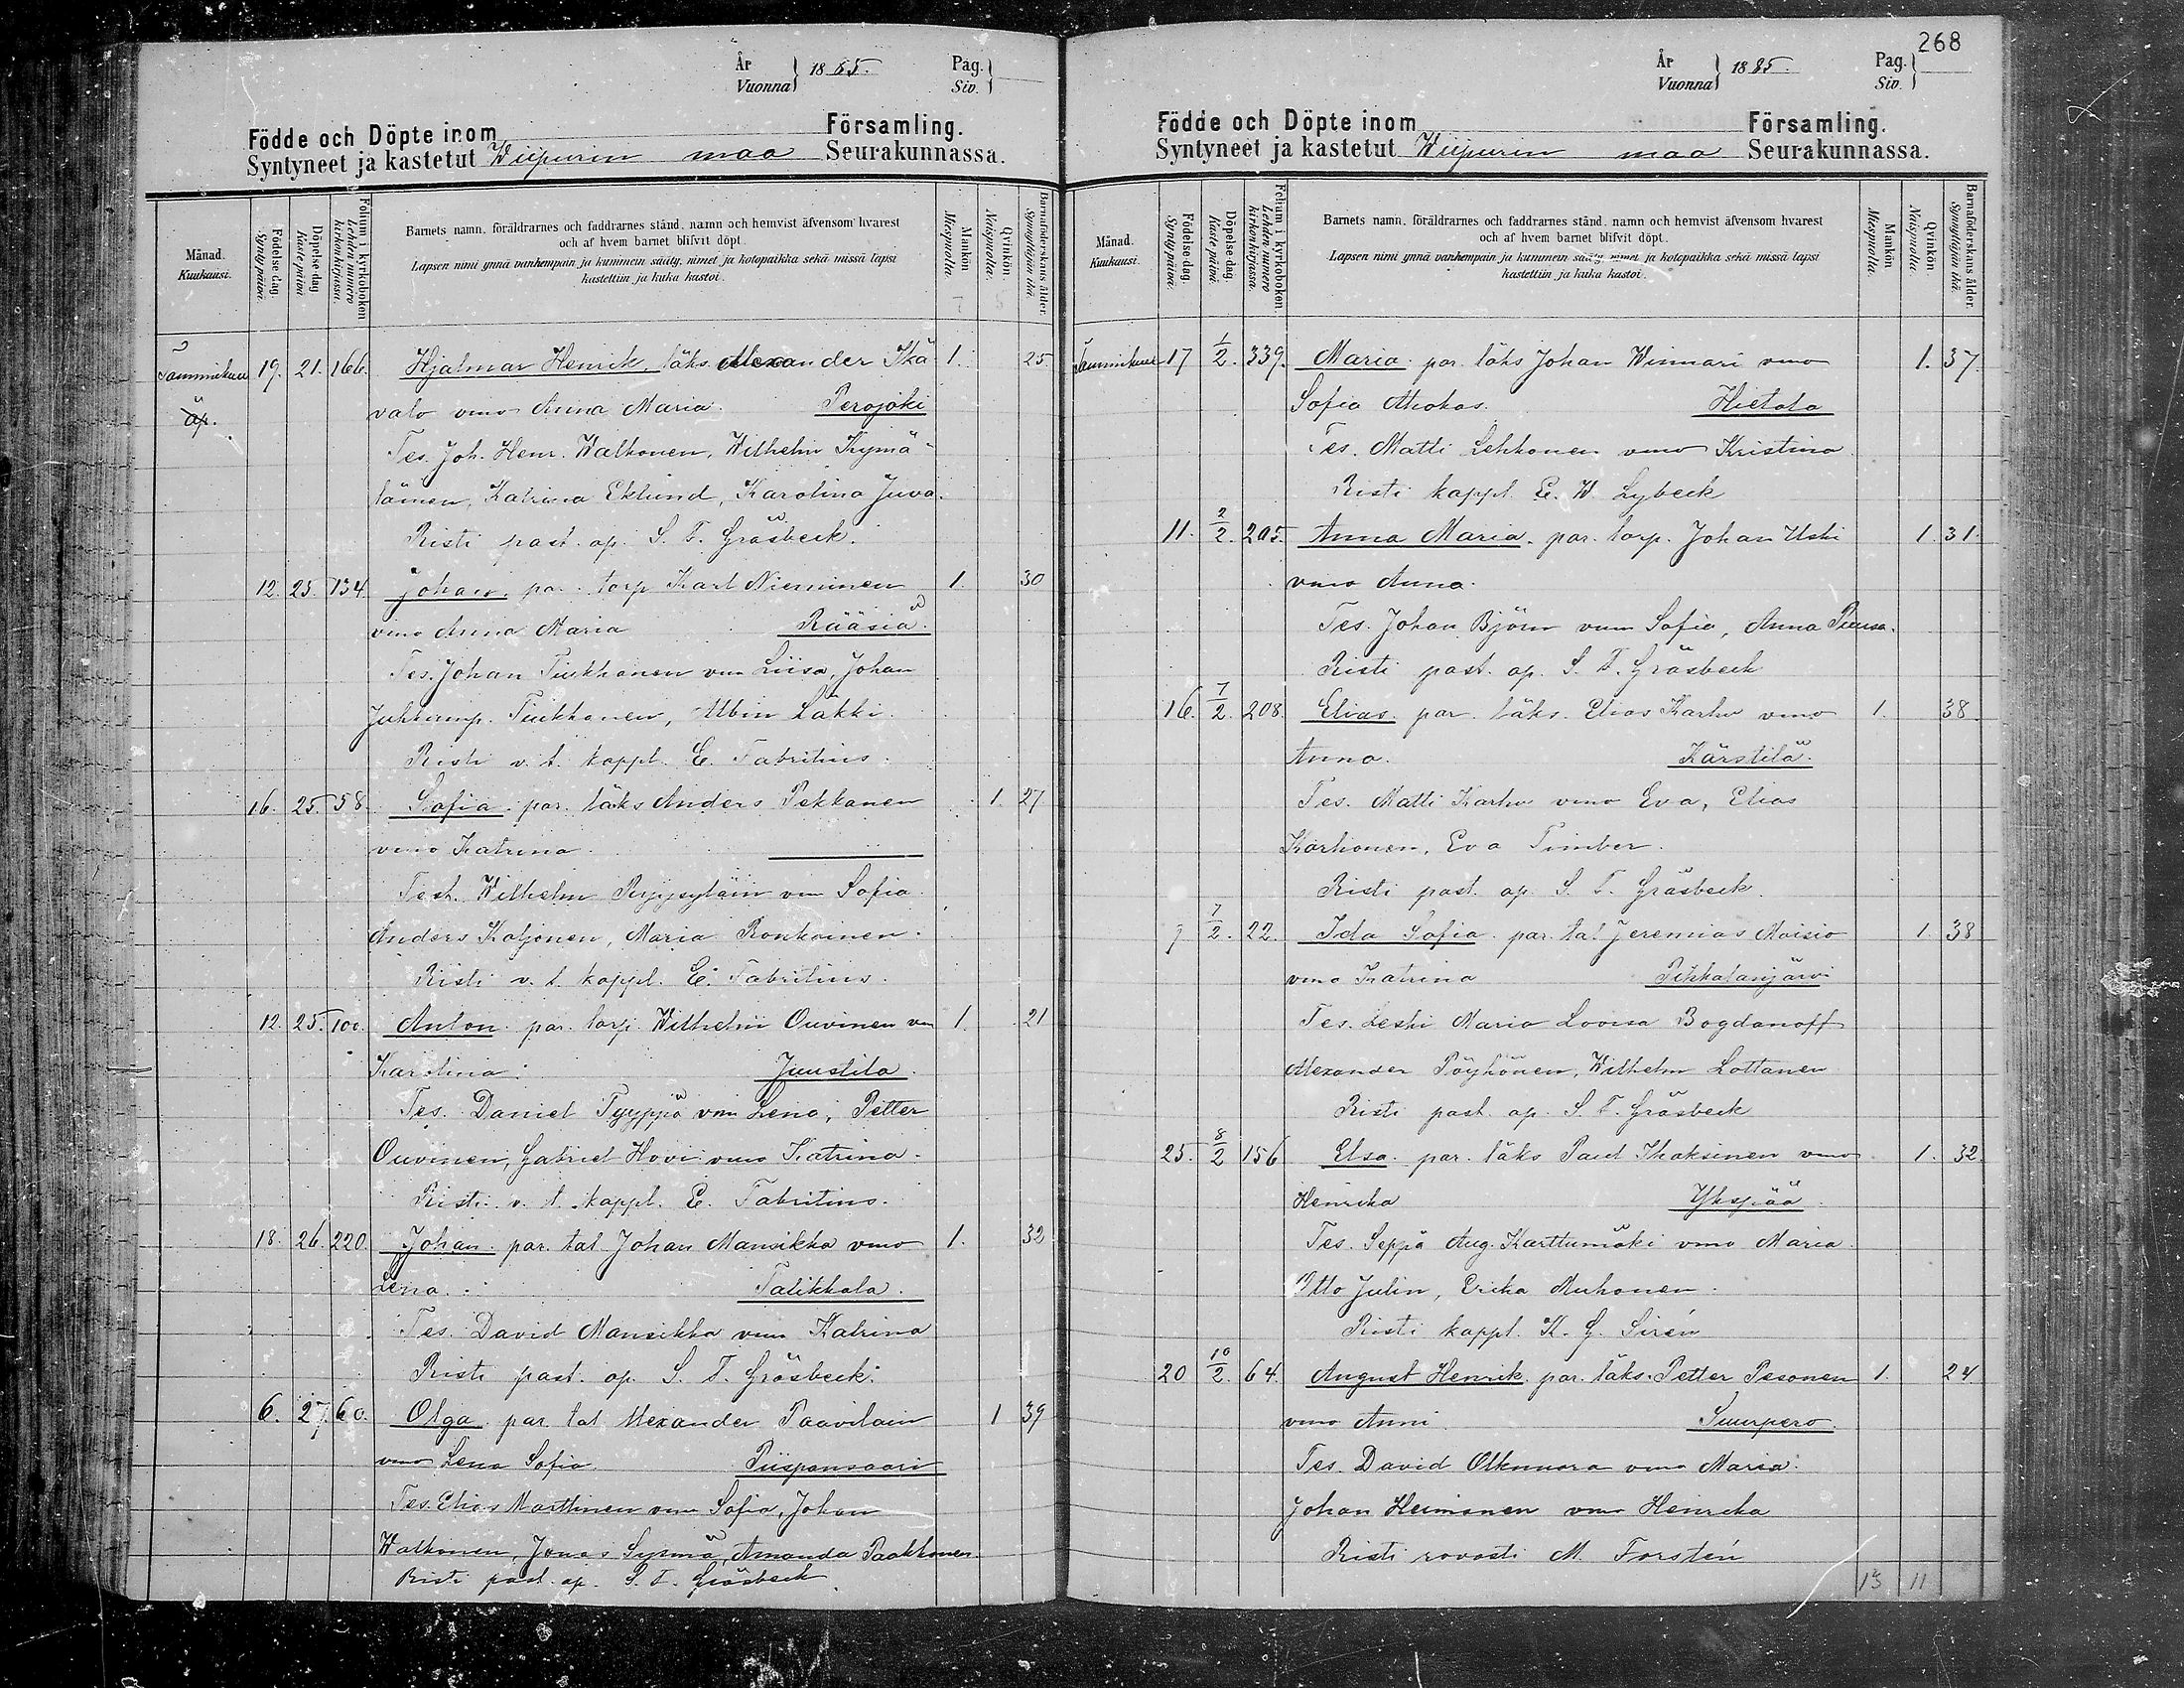 År
Vuonna } 1885.
Pag.
Siv. }
Födde och Döpte inom Församling.
Syntyneet ja kastetut Wiipurin maa Seurakunnassa.
Månad. Kuukausi.
Födelse dag. Syntypäivä.
Döpelse dag. Kaste päivä.
Folium i kyrkoboken. Lehden numero kirkonkirjassa.
Barnets namn, föräldrarnes och faddrarnes stånd, namn och hemvist äfvensom hvarest
och af hvem barnet blifvit döpt.
Lapsen nimi ynnä vanhempain ja kummein sääty, nimet ja kotopaikka sekä missä lapsi
kastettiin ja kuka kastoi.
Mankön Miespuolia.
Qvinkön Naispuolia.
Barnaföderskans ålder. Synnyttäjän ikä.
Tammikuu 19. 21. 166. Hjalmar Henrik, läks. Alexander Ikä- 1. 25
valo vmo Anna Maria. Perojoki
Tes. Joh. Henr. Walkonen, Wilhelm Kymä-
läinen, Katrina Eklund, Karolina Juva.
Risti past. ap. S. F. Gräsbeck.
12. 25. 134. Johan. par. torp Karl Nieminen 1. 30
vmo Anna Maria Rääsiä.
Tes. Johan Tiukkanen vmo Liisa, Johan
Tiukkanen, Albin Lakki.
Risti v. t. kappl. E. Fabritius.
16. 25. 58. Sofia. par. läks Anders Pekkanen 1. 27
vmo Katrina.
Test. Wilhelm vmo Sofia
Anders Katjonen, Maria Ronkainen.
Risti v. t. kappl. E. Fabritius.
12. 25. 100. Anton. par. torp. Wilhelm Ouvinen vmo 1. 21
Karolina. Juustila.
Tes. Daniel Tyyppä vmo Lena, Petter
Ouvinen, Gabriel Hovi vmo Katrina.
Risti v. t. kappl. E. Fabritius.
18. 26. 220. Johan. par. tal Johan Mansikka vmo 1. 32
Lena. Talikkala.
Tes. David Mansikka vmo Katrina
Risti past. ap. S. F. Gräsbeck.
6. 27. 60. Olga. par. tal Alexander Paavilain 1 39
vmo Lena Sofia Piispansaari
Tes. Elias Marttinen vmo Sofia, Johan
Walkonen, Jonas Syrmä, Amanda Paakkonen.
Risti past. ap. S. F. Gräsbeck
268
År
Vuonna } 1885.
Pag.
Siv. }
Födde och Döpte inom Församling.
Syntyneet ja kastetut Wiipurin maa Seurakunnassa.
Månad. Kuukausi.
Födelse dag. Syntypäivä.
Döpelse dag. Kaste päivä.
Folium i kyrkoboken. Lehden numero kirkonkirjassa.
Barnets namn, föräldrarnes och faddrarnes stånd, namn och hemvist äfvensom hvarest
och af hvem barnet blifvit döpt.
Lapsen nimi ynnä vanhempain ja kummein sääty, nimet ja kotopaikka sekä missä lapsi
kastettiin ja kuka kastoi.
Mankön Miespuolia.
Qvinkön Naispuolia.
Barnaföderskans ålder. Synnyttäjän ikä.
Tammikuu 17 1/2. 339. Maria. par. läks Johan Winnari vmo 1. 37.
Sofia Ahokas. Hietala
Tes. Matti Lehkonen vmo Kristina
Risti kappl. E. W. Lybeck
11. 2/2. 205. Anna Maria. par. torp. Johan Uski 1. 31.
vmo Anna.
Tes. Johan Björn vmo Sofia, Anna Piensa.
Risti past. ap. S. F. Gräsbeck
16. 7/2. 208. Elias. par. läks. Elias Karhu vmo 1. 38.
Anna. Kärstilä.
Tes. Matti Karhu vmo Eva, Elias
Karhonen, Eva Timber.
Risti past. ap. S. F. Gräsbeck.
7 7/2. 22. Ida Sofia. par. tal Jeremias Moisio 1. 38
vmo Katrina Pihkalanjärvi
Tes. Leski Maria Lovisa Bogdanoff
Alexander Pöyhönen, Wilhelm Lottanen
Risti past. ap. S. F. Gräsbeck
25. 8/2 156 Elsa. par. läks Paul Ihaksinen vmo 1. 32.
Henrika Ykspää.
Tes. Seppä Aug. Karttumäki vmo Maria
Otto Julin, Erika Muhonen.
Risti kappl. K. G. Sirén
20 10/2. 64. August Henrik. par. läks. Petter Pesonen 1. 24
vmo Anni. Suurpero.
Tes. David Olkinuora vmo Maria.
Johan Heimonen vmo Henrika
Risti rovasti M. Forstén
13 11